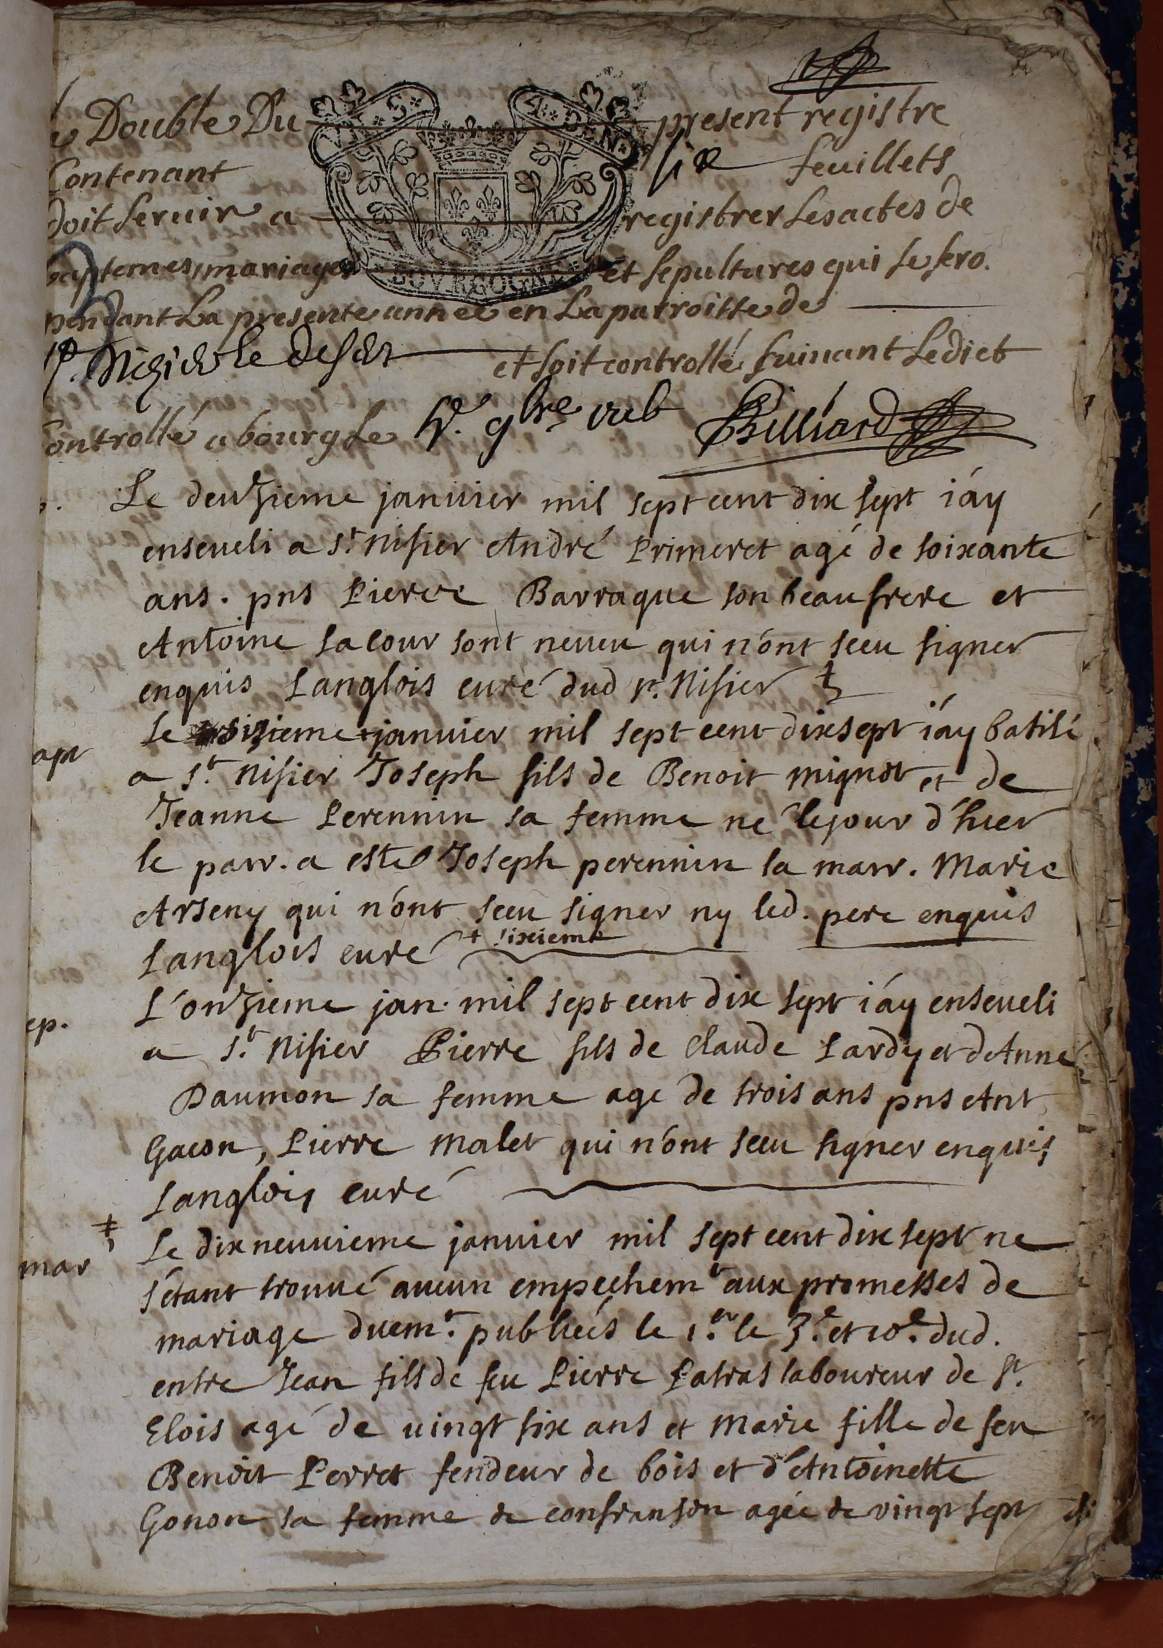 Le Double Du present registre
Contenant six feuillets
doit servir a registrer les actes de
baptemes, mariages et sepultures qui se fero.
BOVRGOGNE
pendant La presente année en La parroisse de
St. Nizier le desert et soit controllé suivant Ledict
Controllé a bourg Le 9bre Billiard
Le deuzieme janvier mil sept cent dix sept i'ay
enseveli a St. Nisier André Primeret agé de soixante
ans. pns Pierre Barraque son beau frere et
Antoine Lacour sont neveu qui n'ont sceu signer
enquis Langlois curé dud St. Nisier
Le sizieme + janvier mil sept cent dix sept i'ay batisé
apt
a St. Nisier Joseph fils de Benoit mignot et de
Jeanne Perennin sa femme né le jour d'hier
le parr. a esté Joseph perennin la marr. Marie
Arseny qui n'ont sceu signer ny led. pere enquis
Langlois curé + sixieme
L'onzieme jan. mil sept cent dix sept i'ay enseveli
ep.
a St. Nisier Pierre fils de Claude Lardy et d'Anne
Daumon sa femme age de trois ans pns Ant
Gacon, Pierre Malet qui n'ont sceu signer enquis
Langlois curé
Le dixneuvieme janvier mil sept cent dix sept ne
mar
s'étant trouvé aucun empechemt aux promesses de
mariage duemt. publiées le 1.er le 3.e et 10.e dud.
entre Jean fils de feu Pierre Patras laboureur de St.
Elois agé de vingt six ans et Marie fille de feu
Benoit Perret fendeur de bois et d'Antoinette
Gonon sa femme de confranson agée de vingt sept